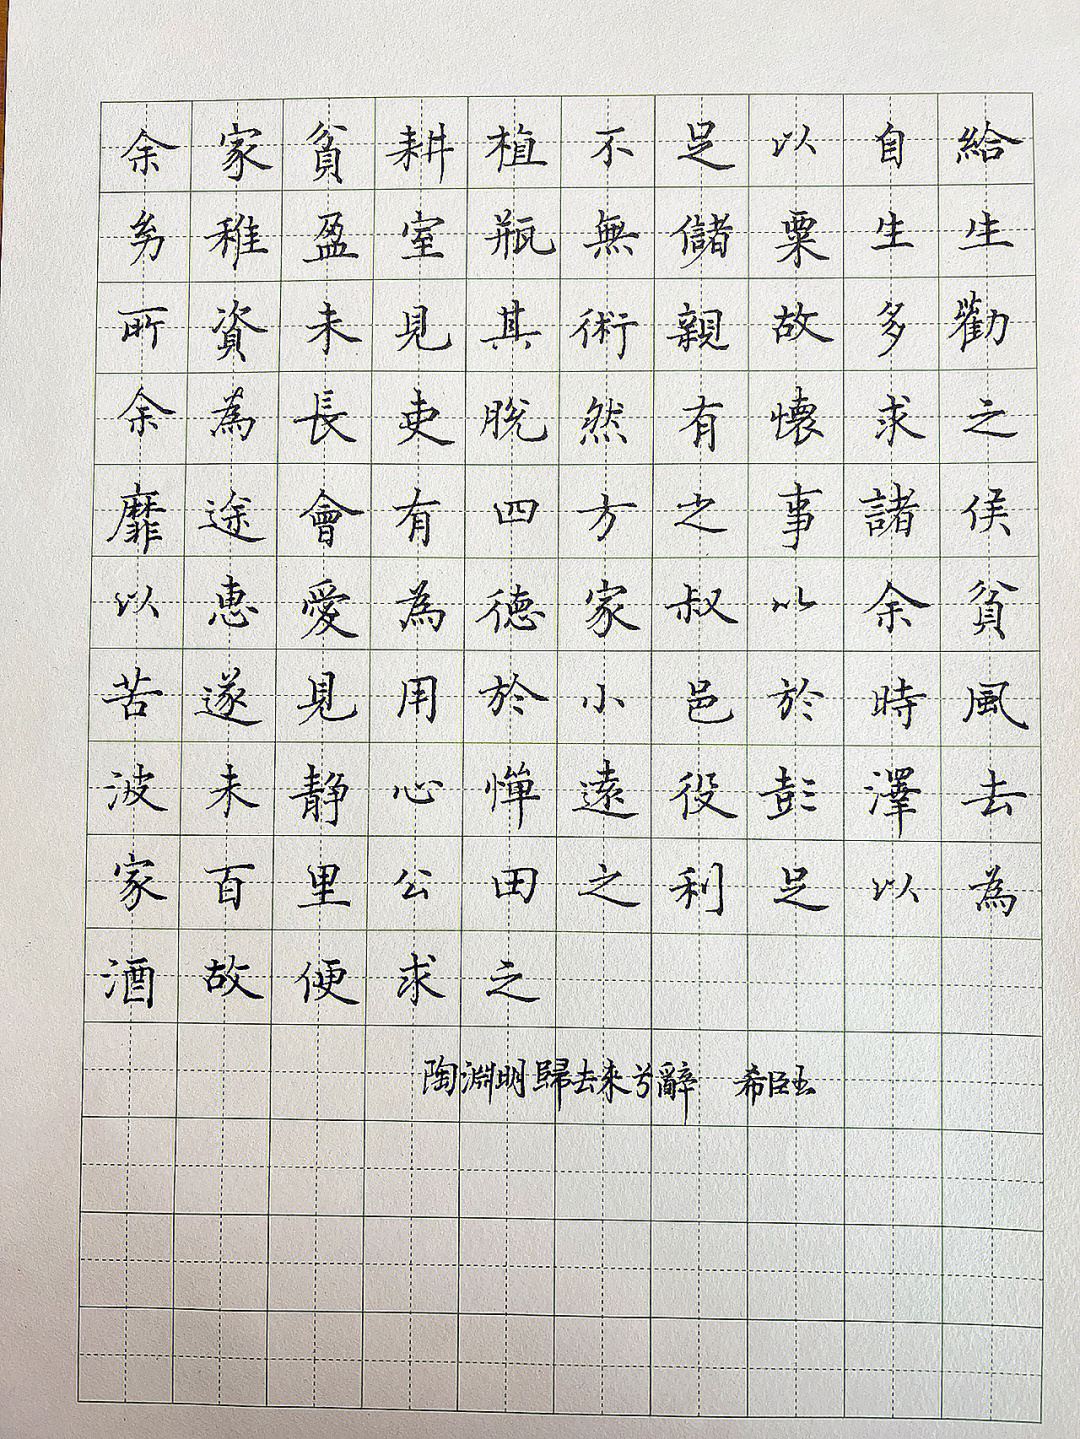 余家貧耕植不足以自給
幼稚盈室瓶無儲粟生生
所資未見其術親故多勸
余為長吏脫然有懷求之
靡途會有四方之事諸侯
以惠愛為德家叔以余貧
苦遂見用於小邑於時風
波未静心憚遠役彭澤去
家百里公田之利足以為
酒故便求之
陶淵明歸去來兮辭 希臣玉